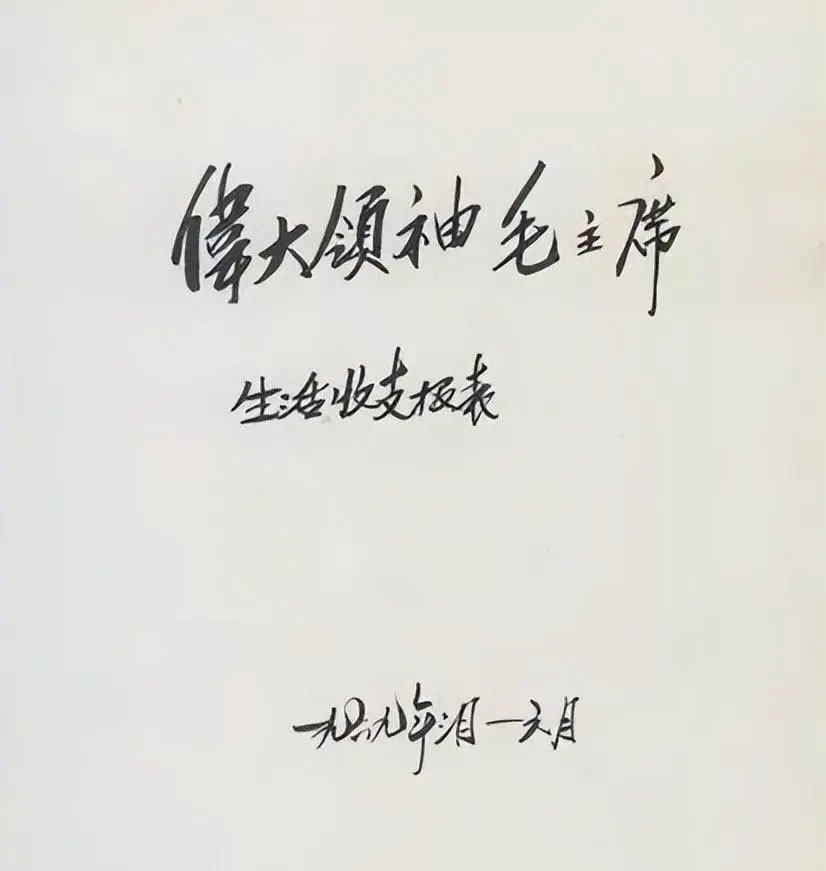 偉大領袖毛主席
生活收支报表
一九六九年三月—六月